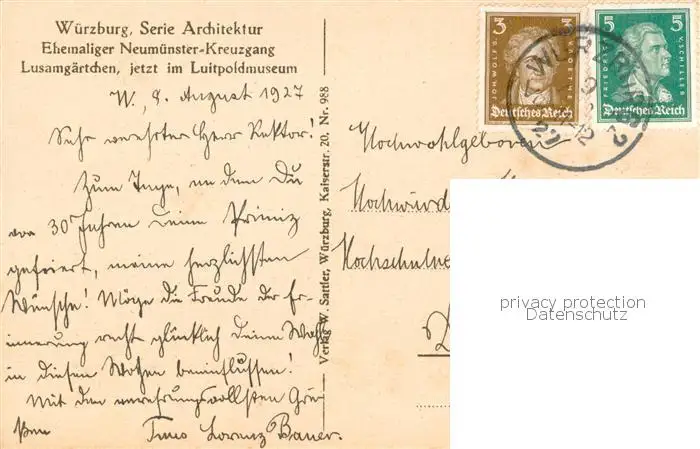 Würzburg, Serie Architektur
Ehemaliger Neumünster-Kreuzgang
Lusamgärtchen, jetzt im Luitpoldmuseum
W., 8. August 1927
Sehr verehrter Herr Rektor!
Zum Tage, an dem Du
vor 30 Jahren Deine Primiz
gefeiert, meine herzlichsten
Wünsche! Möge die Freude der Er-
innerung recht glücklich Deine
in diesen Wochen beeinflussen!
Mit den verehrungsvollsten Grü-
ßen Lorenz Bauer.
Verlag W. Sattler, Würzburg, Kaiserstr. 20, Nr. 988
3 3
JOH. WOLFG. V. GOETHE
Deutsches Reich
5 5
FRIEDRICH V. SCHILLER
Deutsches Reich
WÜRZBURG
Hochwohlgeboren
Hochwürd
Hochschul
privacy protection
Datenschutz